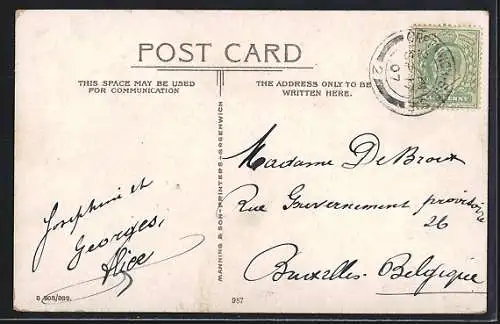 POST CARD
THIS SPACE MAY BE USED
FOR COMMUNICATION
THE ADDRESS ONLY TO BE
WRITTEN HERE.
MANNING & SON·PRINTERS·GREENWICH
Joséphine et
Georges,
Alice
Madame De Broux
Rue Gouvernement provisoire
26
Bruxelles. Belgique
957
07
2